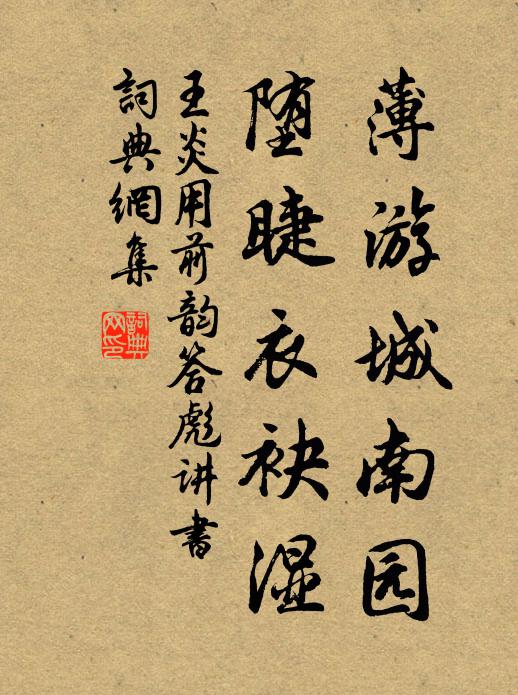 薄游城南园
堕睫衣袂湿
王炎用前韵答彪讲书
詞典網集
詞典網印